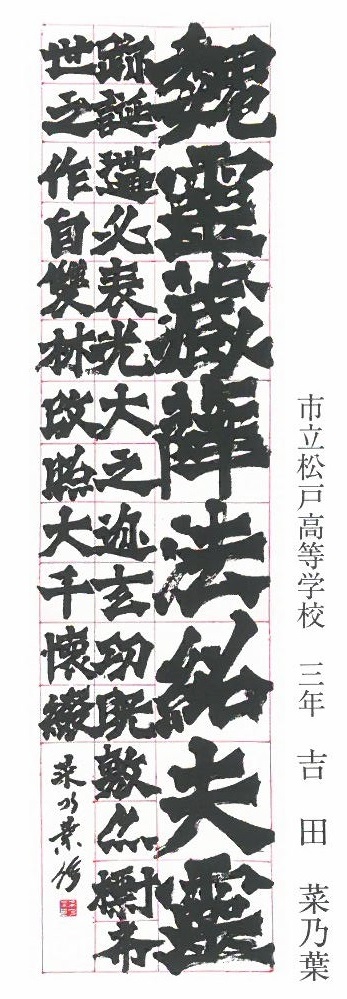 市立松戸高等学校 三年 吉田 菜乃葉
魏靈藏薛法紹夫靈
跡誕遘必表光大之迹玄功既敷亦標希
世之作自雙林改照大千懷綴
菜乃葉臨